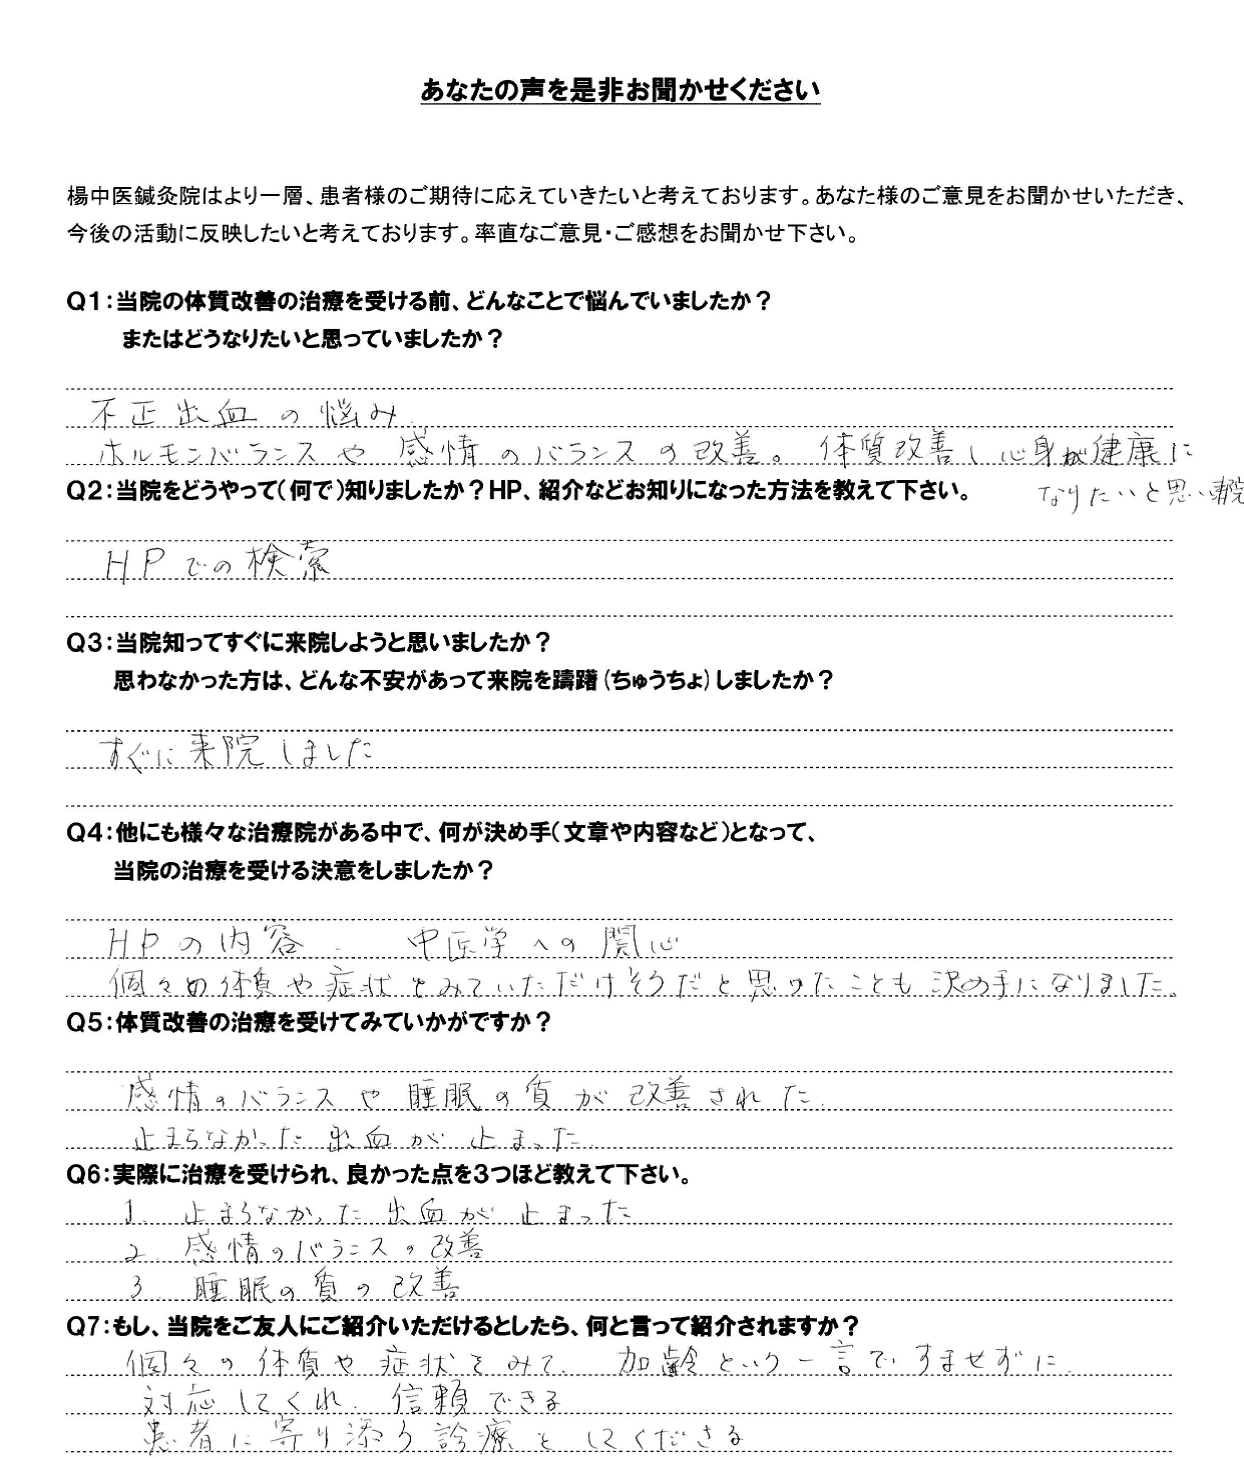 あなたの声を是非お聞かせください
楊中医鍼灸院はより一層、患者様のご期待に応えていきたいと考えております。あなた様のご意見をお聞かせいただき、
今後の活動に反映したいと考えております。率直なご意見・ご感想をお聞かせ下さい。
Q1：当院の体質改善の治療を受ける前、どんなことで悩んでいましたか？
またはどうなりたいと思っていましたか？
不正出血の悩み
ホルモンバランスや感情のバランスの改善。体質改善し心身が健康に
なりたいと思い来院
Q2：当院をどうやって（何で）知りましたか？HP、紹介などお知りになった方法を教えて下さい。
HPでの検索
Q3：当院知ってすぐに来院しようと思いましたか？
思わなかった方は、どんな不安があって来院を躊躇（ちゅうちょ）しましたか？
すぐに来院しました
Q4：他にも様々な治療院がある中で、何が決め手（文章や内容など）となって、
当院の治療を受ける決意をしましたか？
HPの内容、中医学への関心
個々の体質や症状をみていただけそうだと思ったことも決め手になりました。
Q5：体質改善の治療を受けてみていかがですか？
感情のバランスや睡眠の質が改善された.
止まらなかった出血が止まった.
Q6：実際に治療を受けられ、良かった点を３つほど教えて下さい。
1. 止まらなかった出血が止まった
2. 感情のバランスの改善
3 睡眠の質の改善
Q7：もし、当院をご友人にご紹介いただけるとしたら、何と言って紹介されますか？
個々の体質や症状をみて、加齢という一言ですませずに、
対応してくれ、信頼できる
患者に寄り添う診療をしてくださる